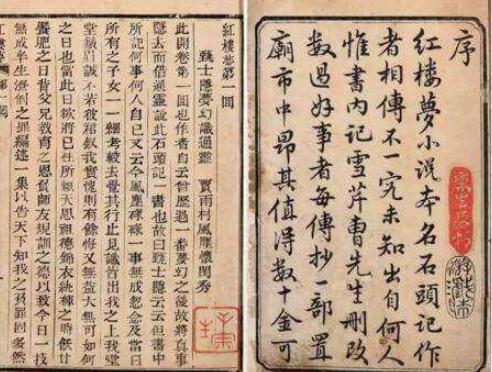 序
紅楼夢小说本名石頭記作
者相傳不一究未知出自何人
惟書內記雪芹曹先生刪改
数過好事者每傳抄一部置
廟市中昂其值得数十金可
紅樓夢第一回
甄士隱夢幻識通靈 賈雨村風塵懷閨秀
此開卷第一回也作者自云曾歷過一番夢幻之後故將真事
隱去而借通靈說此石頭記一書也故曰甄士隱云云但書中
所記何事何人自己又云今風塵碌碌一事無成忽念及當日
所有之女子一一細考較去覺其行止見識皆出我之上我堂
堂鬚眉誠不若彼裙釵我實愧則有餘悔又無益大無可如何
之日也當此日欲將已往所賴天恩祖德錦衣紈袴之時飫甘
饜肥之日背父兄教育之恩負師友規訓之德以致今日一技
無成半生潦倒之罪編述一集以告天下知我之負罪固多然